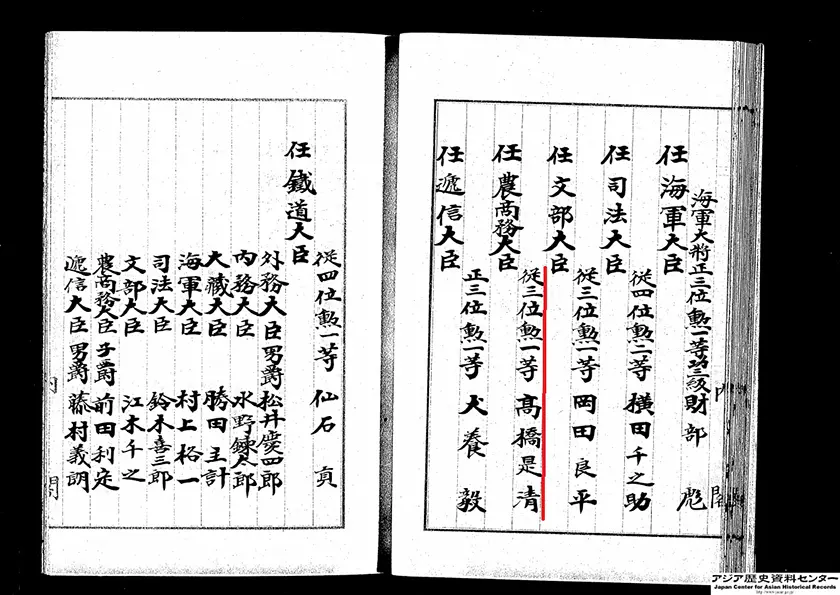 内閣
海軍大将正三位勲一等功三級財部 彪
任海軍大臣
従四位勲二等 横田千之助
任司法大臣
従三位勲一等 岡田良平
任文部大臣
従三位勲一等 高橋是清
任農商務大臣
正三位勲一等 犬養毅
任遞信大臣
従四位勲一等 仙石貢
任鐵道大臣
外務大臣男爵松井慶四郎
内務大臣 水野錬太郎
大藏大臣 勝田主計
海軍大臣 村上格一
司法大臣 鈴木喜三郎
文部大臣 江木千之
農商務大臣子爵 前田利定
遞信大臣男爵 藤村義朗
内閣
アジア歴史資料センター
Japan Center for Asian Historical Records
http://www.jacar.go.jp/